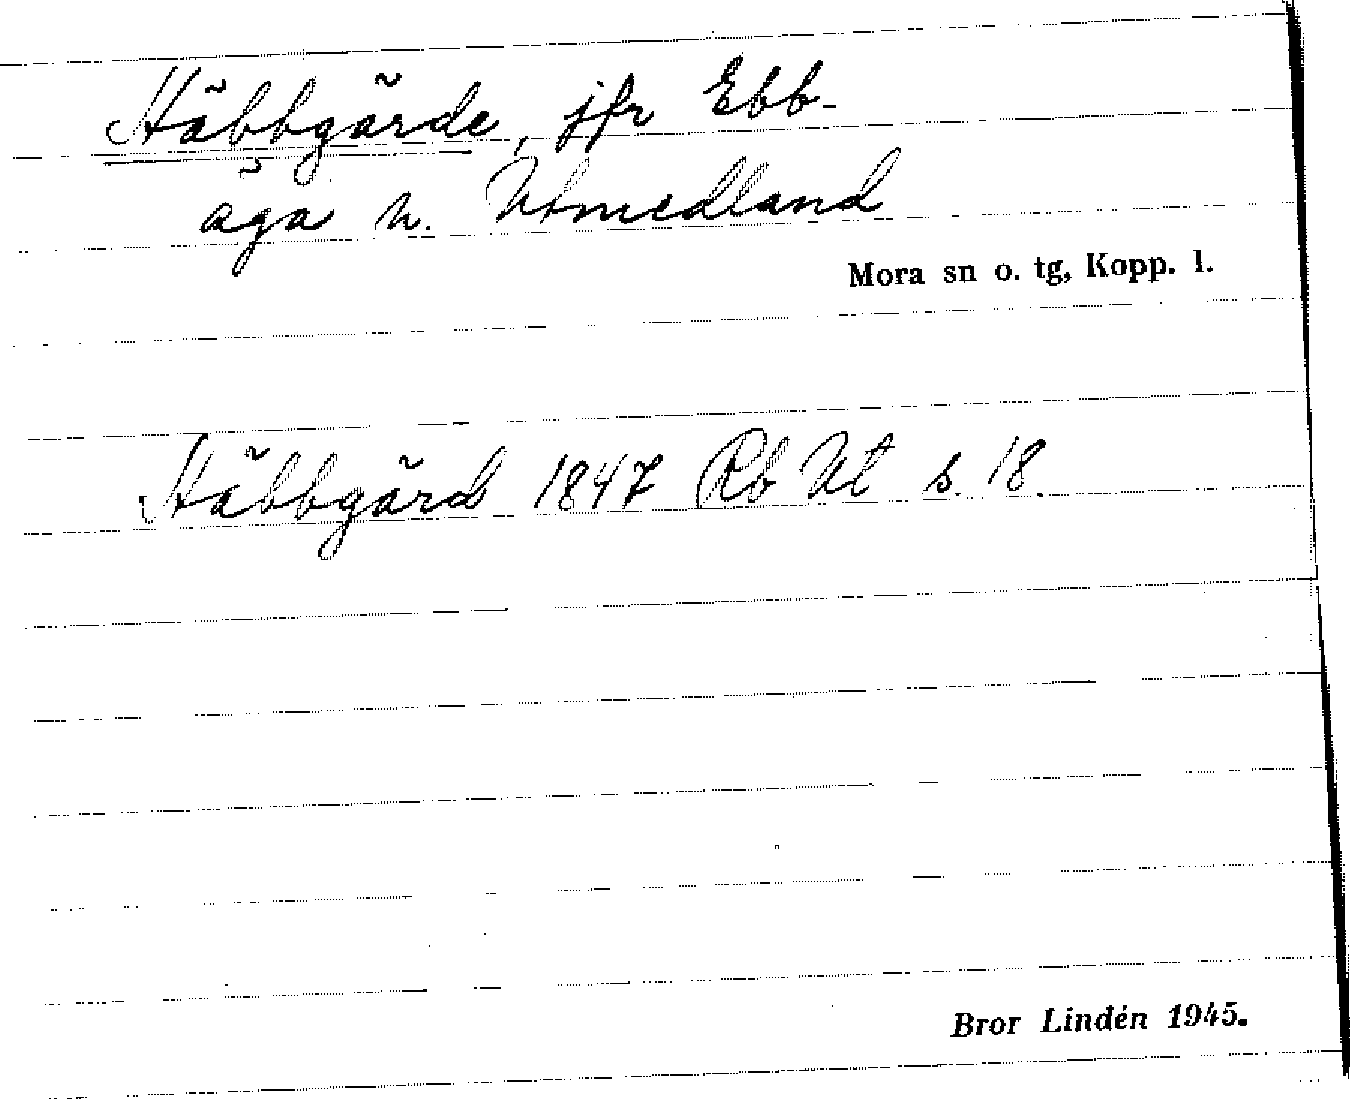 Häbbgärde, jfr Ebb-
äga n. Utmedland
Mora sn o. tg, Kopp. l.
Häbbgärd 1847 Rb Ut s. 18.
Bror Lindén 1945.